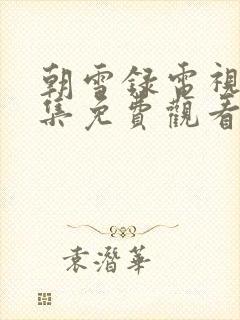 朝雪錄電視
集免費觀看
袁潛華